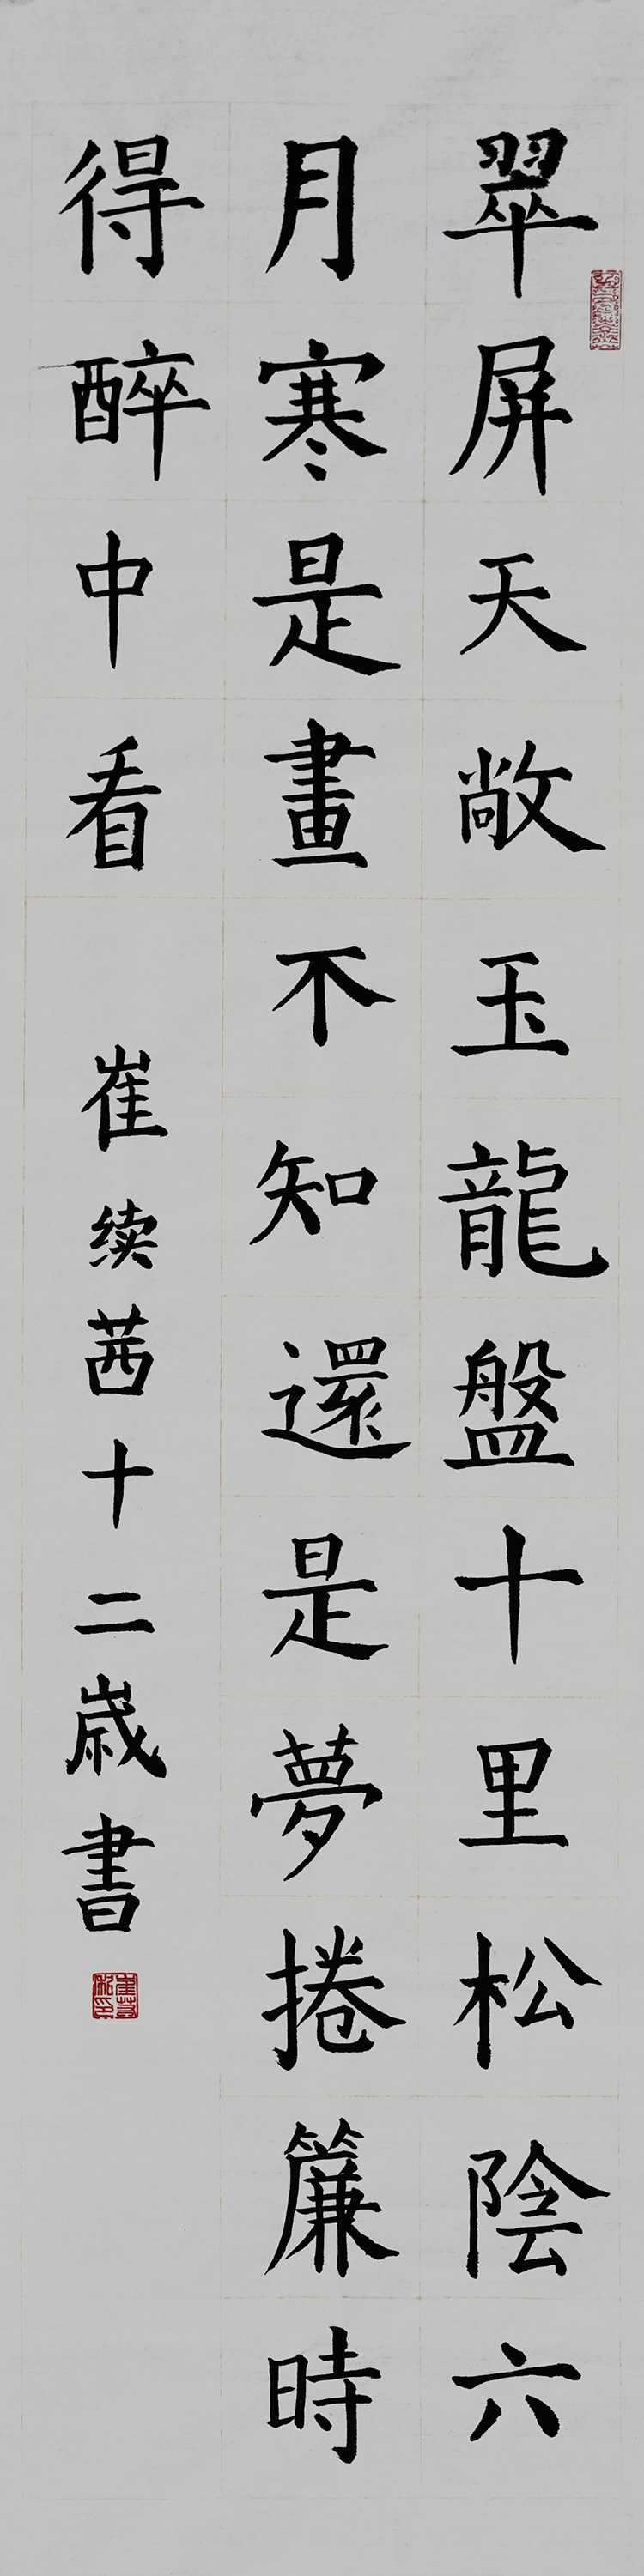 翠屏天敞玉龍盤十里松陰六
月寒是畫不知還是夢捲簾時
得醉中看
崔续茜十二歳書